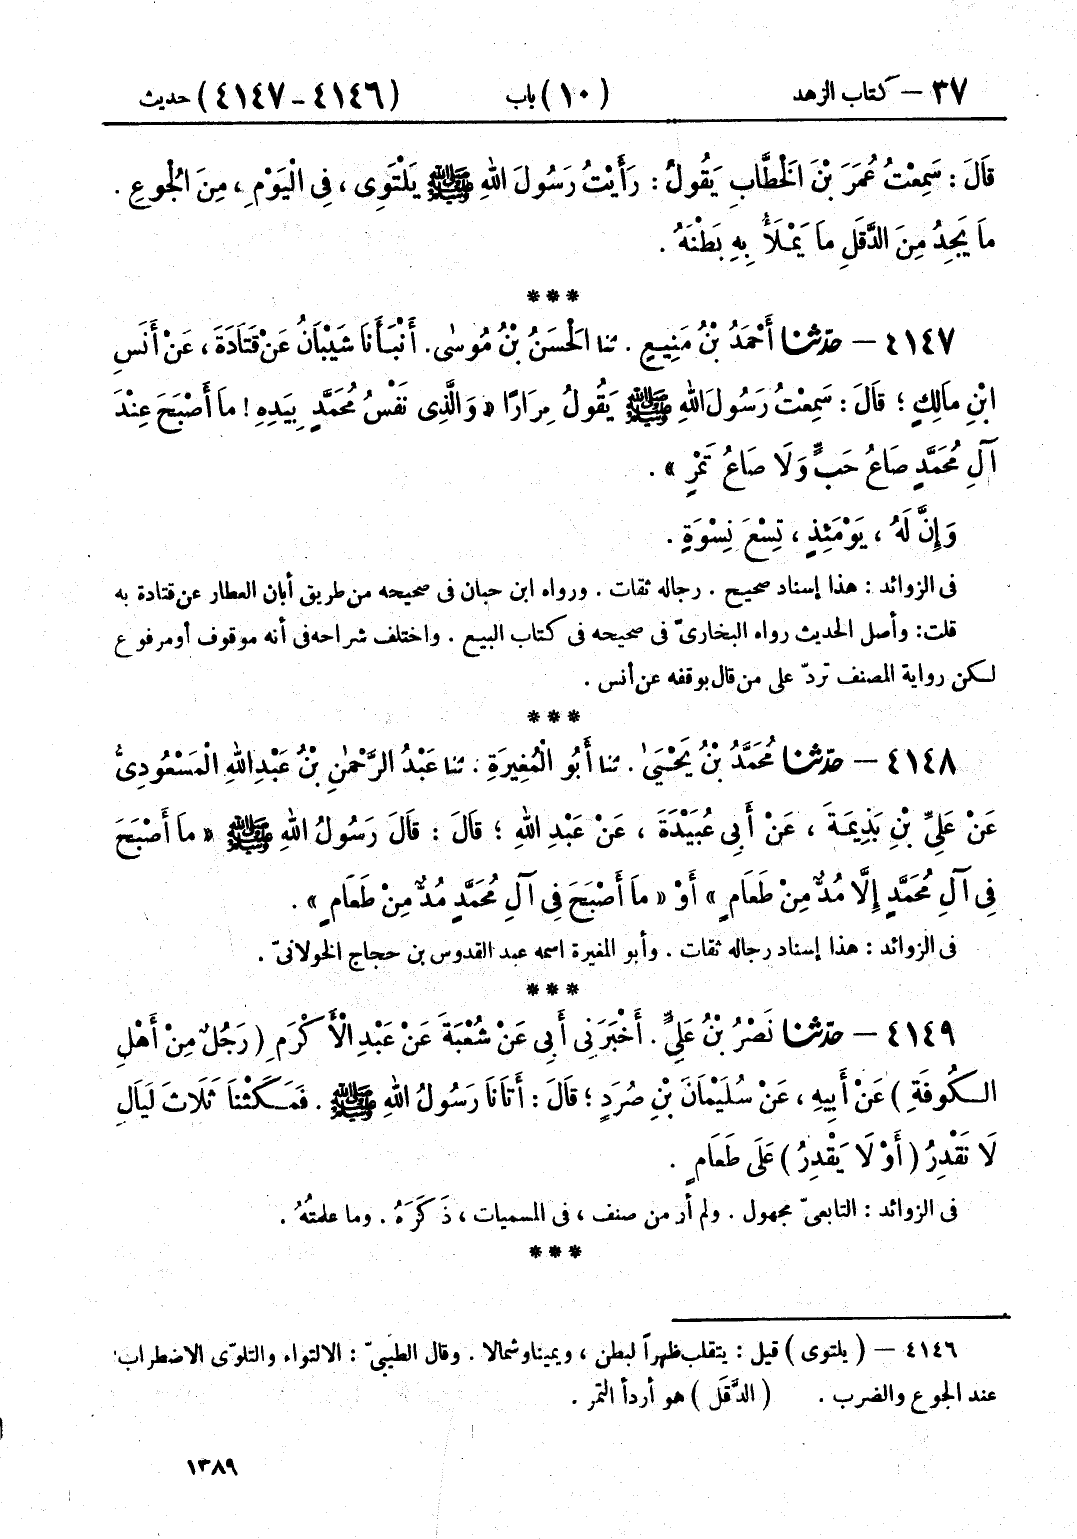 ٣٧ – كتاب الزهد (١٠) باب (٤١٤٦ – ٤١٤٧) حديث
قَالَ : سَمِعْتُ عُمَرَ بْنَ الْخَطَّابِ يَقُولُ : رَأَيْتُ رَسُولَ اللهِ ﷺ يَلْتَوِى ، فِى الْيَوْمِ ، مِنَ الْجُوعِ .
مَا يَجِدُ مِنَ الدَّقَلِ مَا يَمْلَأُ بِهِ بَطْنَهُ .
***
٤١٤٧ – حَدّثنا أَحْمَدُ بْنُ مَنِيعٍ . ثنا الْحَسَنُ بْنُ مُوسٰى. أَنْبَأَنَا شَيْبَانُ عَنْ قَتَادَةَ ، عَنْ أَنَسِ
ابْنِ مَالِكٍ ؛ قَالَ : سَمِعْتُ رَسُولَ اللهِ ﷺ يَقُولُ مِرَارًا « وَالَّذِى نَفْسُ مُحَمَّدٍ بِيَدِهِ ! مَا أَصْبَحَ عِنْدَ
آلِ مُحَمَّدٍ صَاعُ حَبٍّ وَلَا صَاعُ تَمْرٍ » .
وَإِنَّ لَهُ ، يَوْمَئِذٍ ، تِسْعَ نِسْوَةٍ .
فى الزوائد : هذا إسناد صحيح . رجاله ثقات . ورواه ابن حبان فى صحيحه من طريق أبان العطار عن قتادة به
قلت : وأصل الحديث رواه البخارىّ فى صحيحه فى كتاب البيع . واختلف شراحه فى أنه موقوف أو مرفوع
لكن رواية المصنف تردّ على من قال بوقفه عن أنس .
***
٤١٤٨ – حَدّثنا مُحَمَّدُ بْنُ يَحْيَىٰ . ثنا أَبُو الْمُغِيرَةِ . ثنا عَبْدُ الرَّحْمٰنِ بْنُ عَبْدِ اللهِ الْمَسْعُودِىُّ
عَنْ عَلِيِّ بْنِ بَذِيمَةَ ، عَنْ أَبِى عُبَيْدَةَ ، عَنْ عَبْدِ اللهِ ؛ قَالَ : قَالَ رَسُولُ اللهِ ﷺ « مَا أَصْبَحَ
فِى آلِ مُحَمَّدٍ إِلَّا مُدٌّ مِنْ طَعَامٍ » أَوْ « مَا أَصْبَحَ فِى آلِ مُحَمَّدٍ مُدٌّ مِنْ طَعَامٍ » .
فى الزوائد : هذا إسناد رجاله ثقات . وأبو المغيرة اسمه عبد القدوس بن حجاج الخولانىّ .
***
٤١٤٩ – حَدّثنا نَصْرُ بْنُ عَلِيٍّ . أَخْبَرَنِى أَبِى عَنْ شُعْبَةَ عَنْ عَبْدِ الْأَكْرَمِ ( رَجُلٌ مِنْ أَهْلِ
الْكُوفَةِ ) عَنْ أَبِيهِ ، عَنْ سُلَيْمَانَ بْنِ صُرَدٍ ؛ قَالَ : أَتَانَا رَسُولُ اللهِ ﷺ . فَمَكَثْنَا ثَلَاثَ لَيَالٍ
لَا نَقْدِرُ ( أَوْ لَا يَقْدِرُ ) عَلَى طَعَامٍ .
فى الزوائد : التابعىّ مجهول . ولم أر من صنف ، فى المسميات ، ذَكَرَهُ . وما علمتُهُ .
***
٤١٤٦ – ( يلتوى ) قيل : يتقلب ظهراً لبطن ، ويمينا وشمالا . وقال الطيبىّ : الالتواء والتلوّى الاضطراب
عند الجوع والضرب . ( الدَّقَل ) هو أردأ التمر .
١٣٨٩